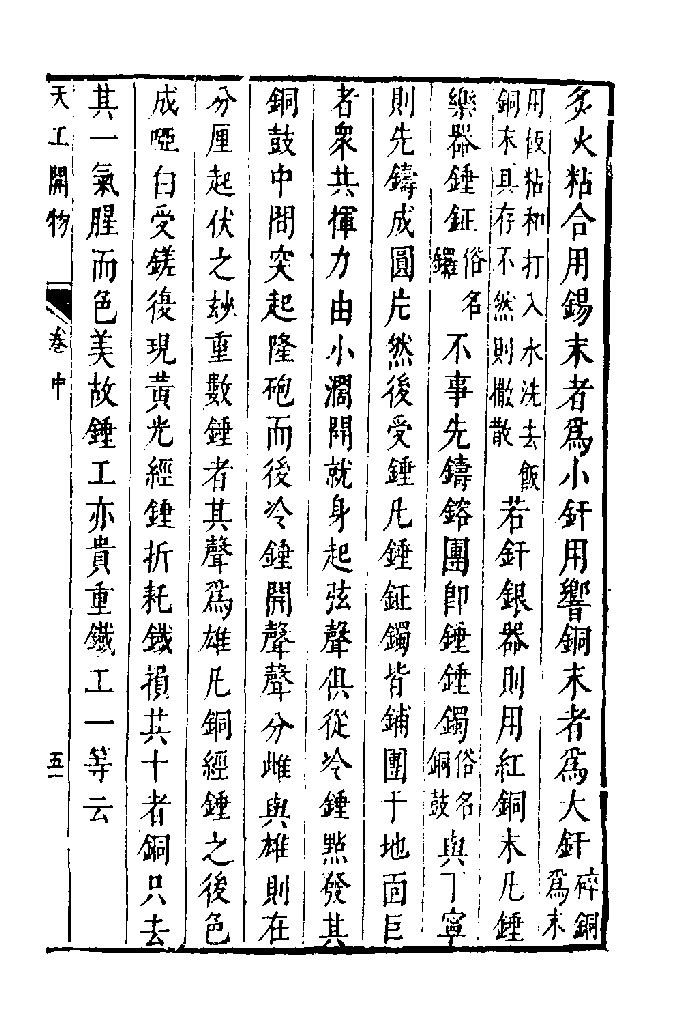 炙火粘合用錫末者爲小釬用響銅末者爲大釬碎銅爲末
用飯粘和打入水洗去飯銅末具存不然則撒散若釬銀器則用紅銅末凡錘
樂器錘鉦俗名鑼不事先鑄鎔團即錘錘鐲俗名銅鼓與丁寧
則先鑄成圓片然後受錘凡錘鉦鐲皆鋪團于地面巨
者衆共揮力由小濶開就身起弦聲俱從冷錘點發其
銅鼓中間突起隆砲而後冷錘開聲聲分雌與雄則在
分厘起伏之玅重數錘者其聲爲雄凡銅經錘之後色
成啞白受鎈復現黃光經錘折耗鐵損其十者銅只去
其一氣腥而色美故錘工亦貴重鐵工一等云
天工開物 卷中 五一